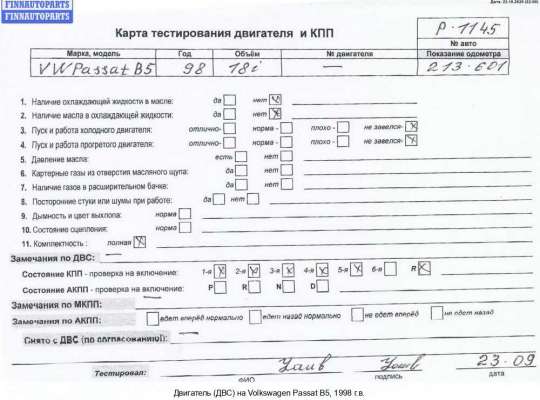 FINNAUTOPARTS
FINNAUTOPARTS
Карта тестирования двигателя и КПП
P·1145
№ авто
Марка, модель Год Объём № двигателя Показание одометра
VW Passat B5 98 18i — 213·601
1. Наличие охлаждающей жидкости в масле: да нет X
2. Наличие масла в охлаждающей жидкости: да нет X
3. Пуск и работа холодного двигателя: отлично- норма - плохо - не завелся- X
4. Пуск и работа прогретого двигателя: отлично- норма - плохо - не завелся- X
5. Давление масла: есть нет
6. Картерные газы из отверстия масляного щупа: да нет
7. Наличие газов в расширительном бачке: да нет
8. Посторонние стуки или шумы при работе: да нет
9. Дымность и цвет выхлопа: норма
10. Состояние сцепления: норма
11. Комплектность : полная X
Замечания по ДВС: —
Состояние КПП - проверка на включение: 1-я X 2-я X 3-я X 4-я X 5-я X 6-я R X
Состояние АКПП - проверка на включение: P R N D
Замечания по МКПП: —
Замечания по АКПП: едет вперёд нормально едет назад нормально не едет вперёд не едет назад
Снято с ДВС (по согласованию): —
Тестировал: 23·09
ФИО подпись дата
Двигатель (ДВС) на Volkswagen Passat B5, 1998 г.в.